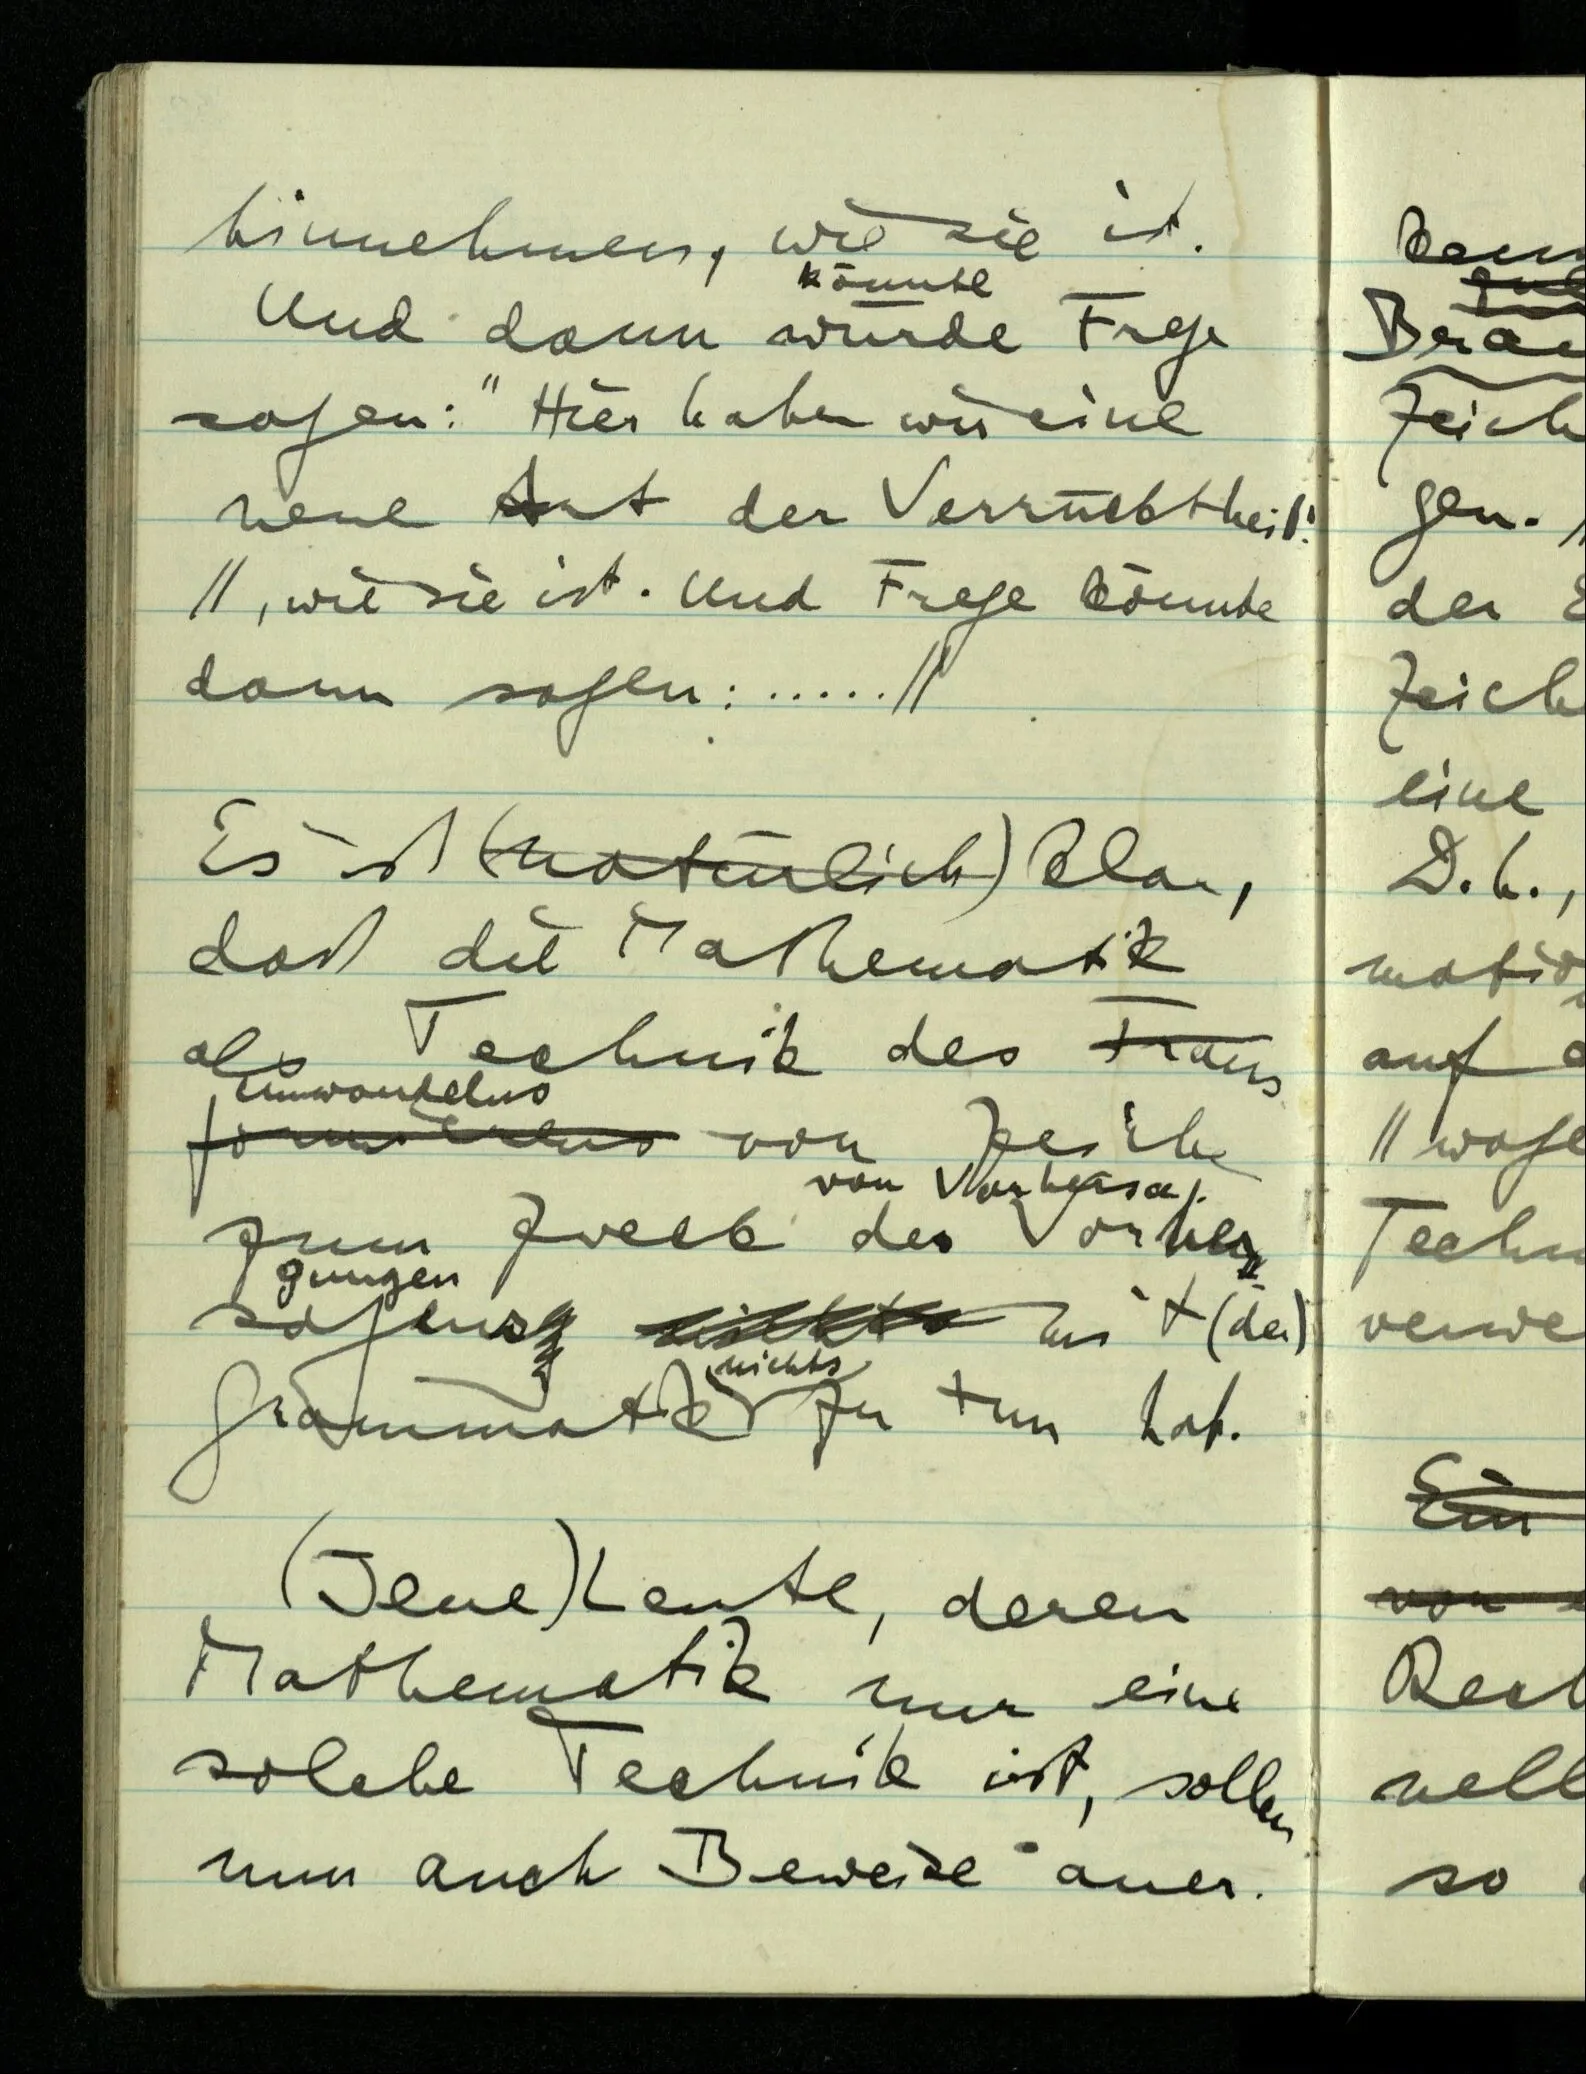 hinnehmen, wie sie ist.
könnte
Und dann würde Frege
sagen: "Hier haben wir eine
neue Art der Verrücktheit."
//, wie sie ist. Und Frege könnte
dann sagen: ..... //
Es ist (natürlich) klar,
daß die Mathematik
als Technik des Trans
umwandelns
formierens von Zeichen
von Vorhersa¬
zum Zweck des Vorher
gungen
sagens nichts mit (der)
nichts
Grammatik zu tun hat.
(Jene) Leute, deren
Mathematik nur eine
solche Technik ist, sollen
nun auch Beweise aner-
Zeich
gen. //
der
Zeich
eine
D.h.,
auf
Techn
verwe
Ein
von
so